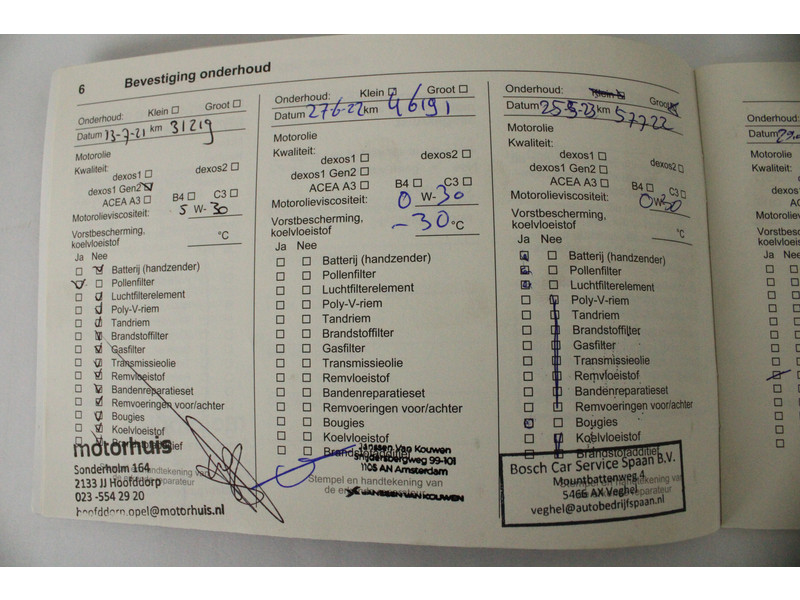 6 Bevestiging onderhoud
Onderhoud: Klein Groot
Datum 13-7-21 km 31219
Motorolie
Kwaliteit:
dexos1 dexos2
dexos1 Gen2
ACEA A3 B4 C3
Motorolieviscositeit: 5 W-30
Vorstbescherming,
koelvloeistof °C
Ja Nee
Batterij (handzender)
Pollenfilter
Luchtfilterelement
Poly-V-riem
Tandriem
Brandstoffilter
Gasfilter
Transmissieolie
Remvloeistof
Bandenreparatieset
Remvoeringen voor/achter
Bougies
Koelvloeistof
motorhuis
Sonderholm 164
2133 JJ Hoofddorp
023 -554 29 20
hoofddorp.opel@motorhuis.nl
Onderhoud: Klein Groot
Datum 27-6-22 km 46191
Motorolie
Kwaliteit:
dexos1 dexos2
dexos1 Gen2
ACEA A3 B4 C3
Motorolieviscositeit: 0 W-30
Vorstbescherming,
koelvloeistof -30 °C
Ja Nee
Batterij (handzender)
Pollenfilter
Luchtfilterelement
Poly-V-riem
Tandriem
Brandstoffilter
Gasfilter
Transmissieolie
Remvloeistof
Bandenreparatieset
Remvoeringen voor/achter
Bougies
Koelvloeistof
Brandstofadditief
Janssen Van Kouwen
Snijdersbergweg 99-101
1105 AN Amsterdam
Stempel en handtekening van
de
JANSSEN VAN KOUWEN
Onderhoud: Klein Groot
Datum 25-5-23 km 57722
Motorolie
Kwaliteit:
dexos1 dexos2
dexos1 Gen2
ACEA A3 B4 C3
Motorolieviscositeit: 0W30
Vorstbescherming,
koelvloeistof °C
Ja Nee
Batterij (handzender)
Pollenfilter
Luchtfilterelement
Poly-V-riem
Tandriem
Brandstoffilter
Gasfilter
Transmissieolie
Remvloeistof
Bandenreparatieset
Remvoeringen voor/achter
Bougies
Koelvloeistof
Brandstofadditief
Bosch Car Service Spaan B.V.
Mountbattenweg 4
5466 AX Veghel
veghel@autobedrijfspaan.nl
Onderhoud:
Datum
Motorolie
Kwaliteit:
Ja Nee